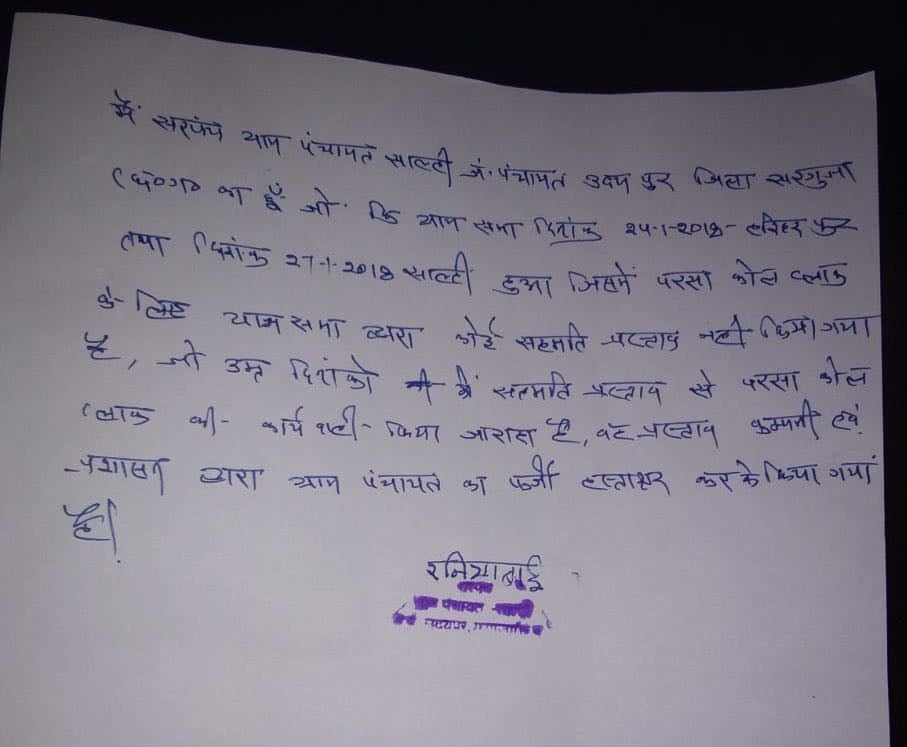 में सरपंच ग्राम पंचायत साल्ही जं. पंचायत उदय पुर जिला सरगुजा
(छ०ग० का हूँ जो कि ग्राम सभा दिनांक 24-1-2018 - हरिहर पुर
तथा दिनांक 27-1-2018 साल्ही हुआ जिसमें परसा कोल ब्लाक
के लिए ग्राम सभा द्वारा कोई सहमति प्रस्ताव नही किया गया
है, जो उक्त दिनांको में सहमति प्रस्ताव से परसा कोल
ब्लाक की कार्य वाही किया जा रहा है, वह प्रस्ताव कम्पनी एवं
प्रशासन द्वारा ग्राम पंचायत का फर्जी हस्ताक्षर कर के किया गया
है।
रनियाबाई
पंचायत